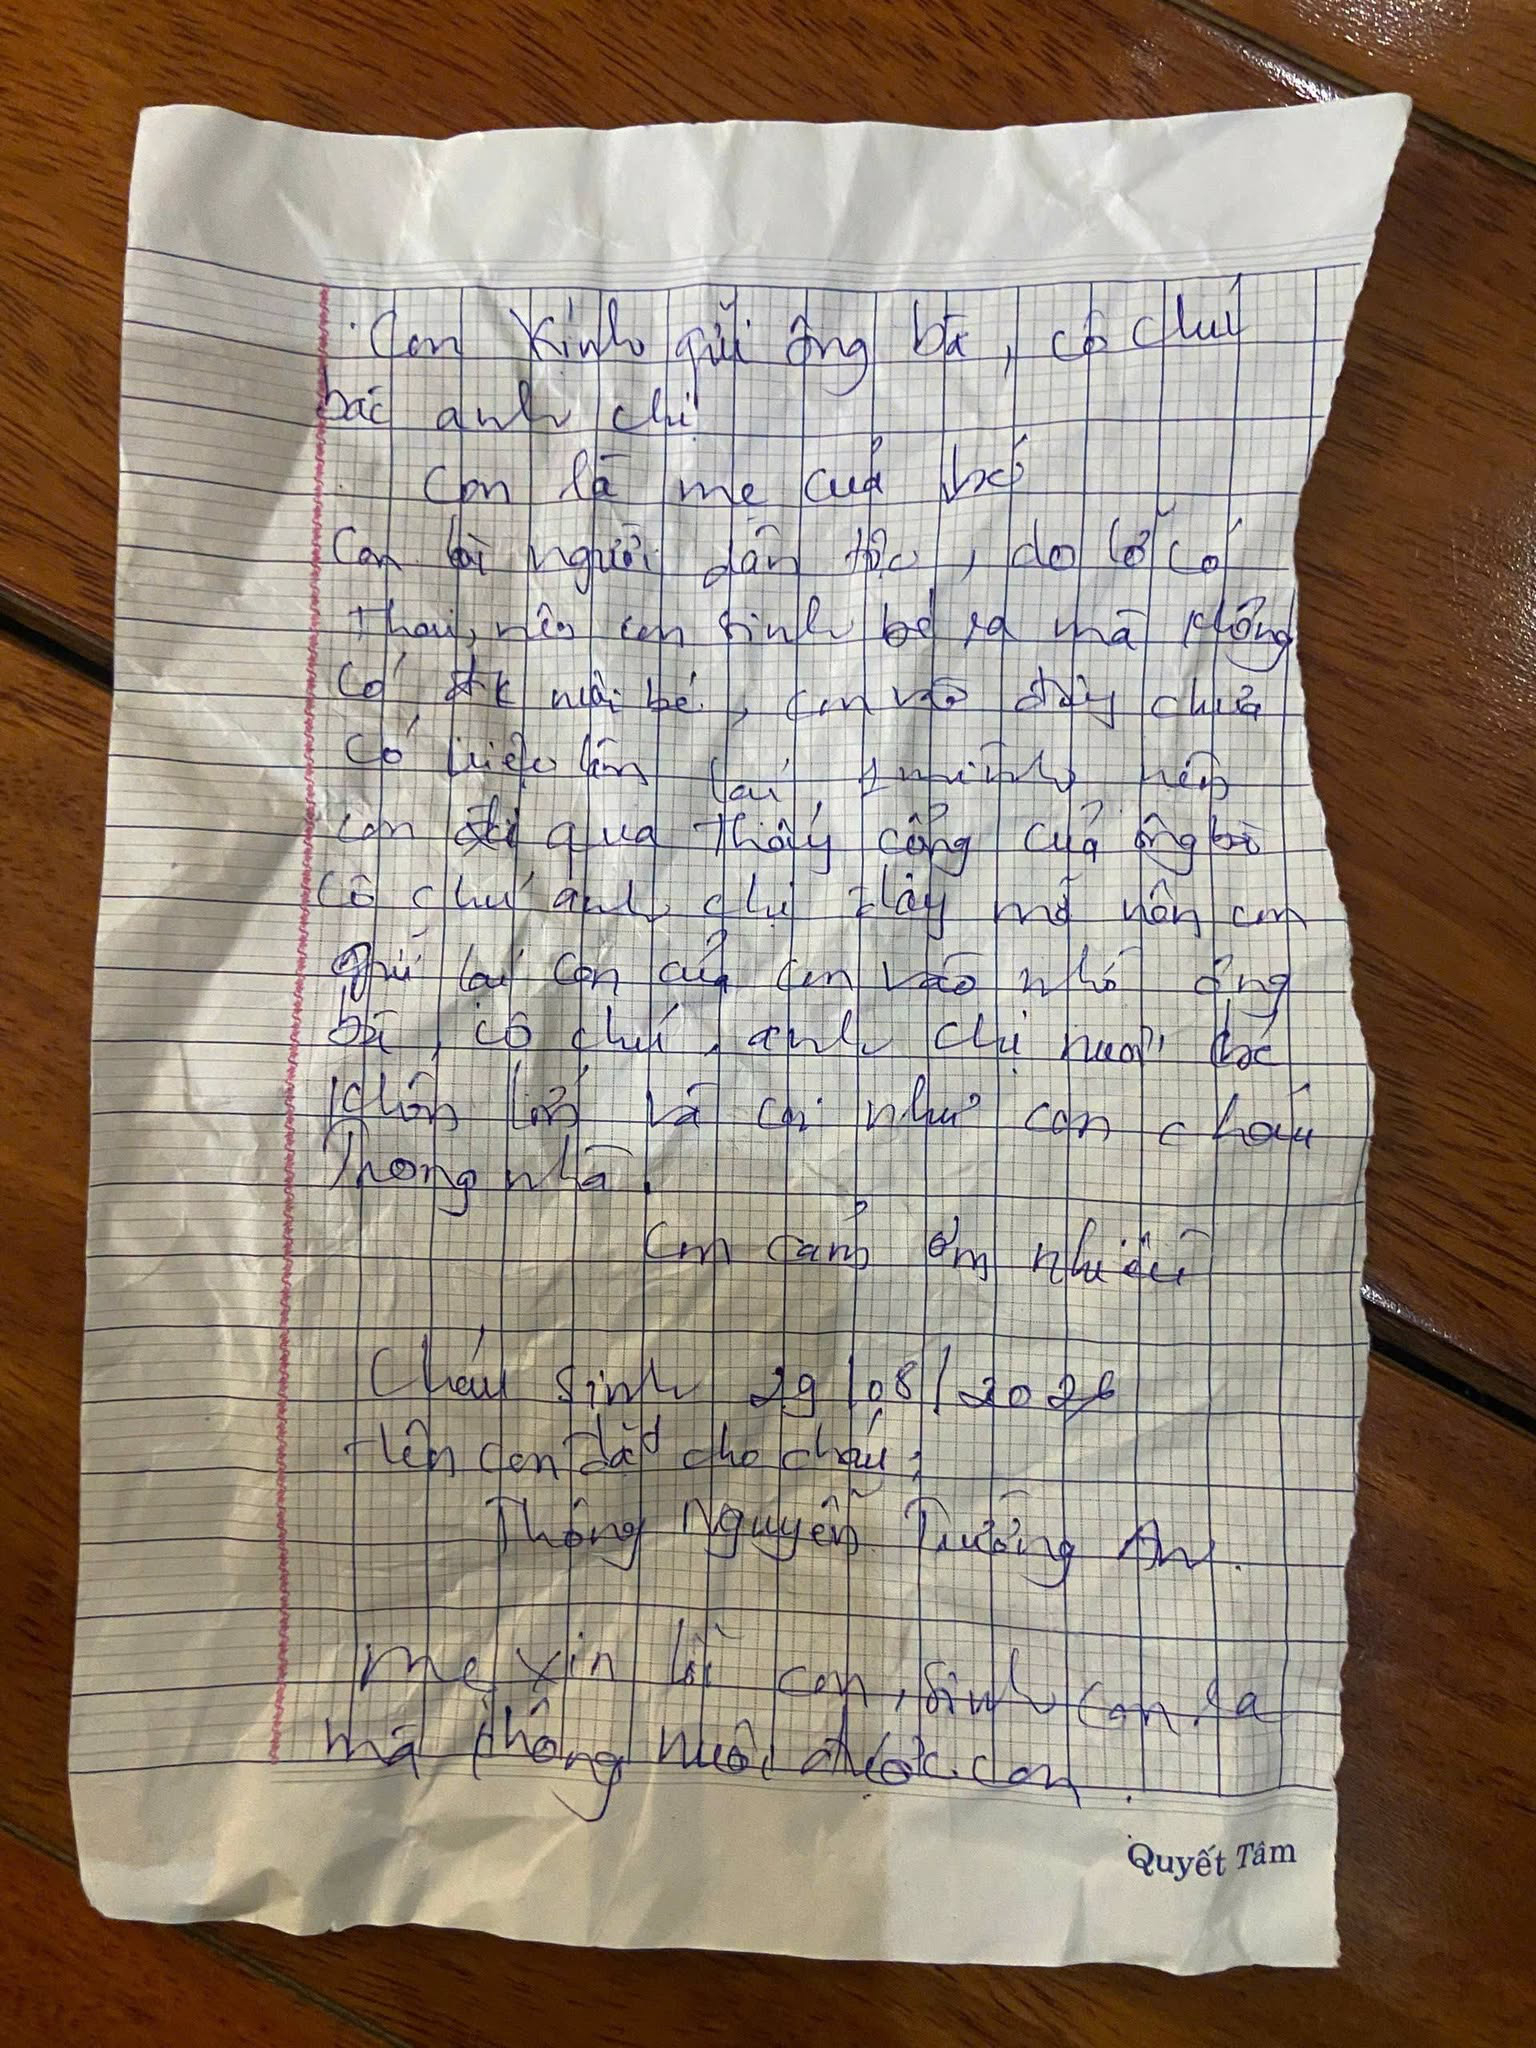 Con kính gửi ông bà, cô chú
bác anh chị
Con là mẹ của bé
Con là người dân tộc, do lỡ có
thai, nên con sinh bé ra mà không
có đk nuôi bé, con vô đây chưa
có việc làm nên
con đi qua thấy cổng của ông bà
cô chú anh chị đây mở nên con
gửi lại con của con vào nhờ ông
bà, cô chú, anh chị nuôi bé
khôn lớn và coi như con cháu
Trong nhà.
Con cảm ơn nhiều
Cháu sinh 29/08/2026
tên con đặt cho cháu:
Thông Nguyễn Trường An.
Mẹ xin lỗi con, sinh con ra
mà không nuôi được con.
Quyết Tâm